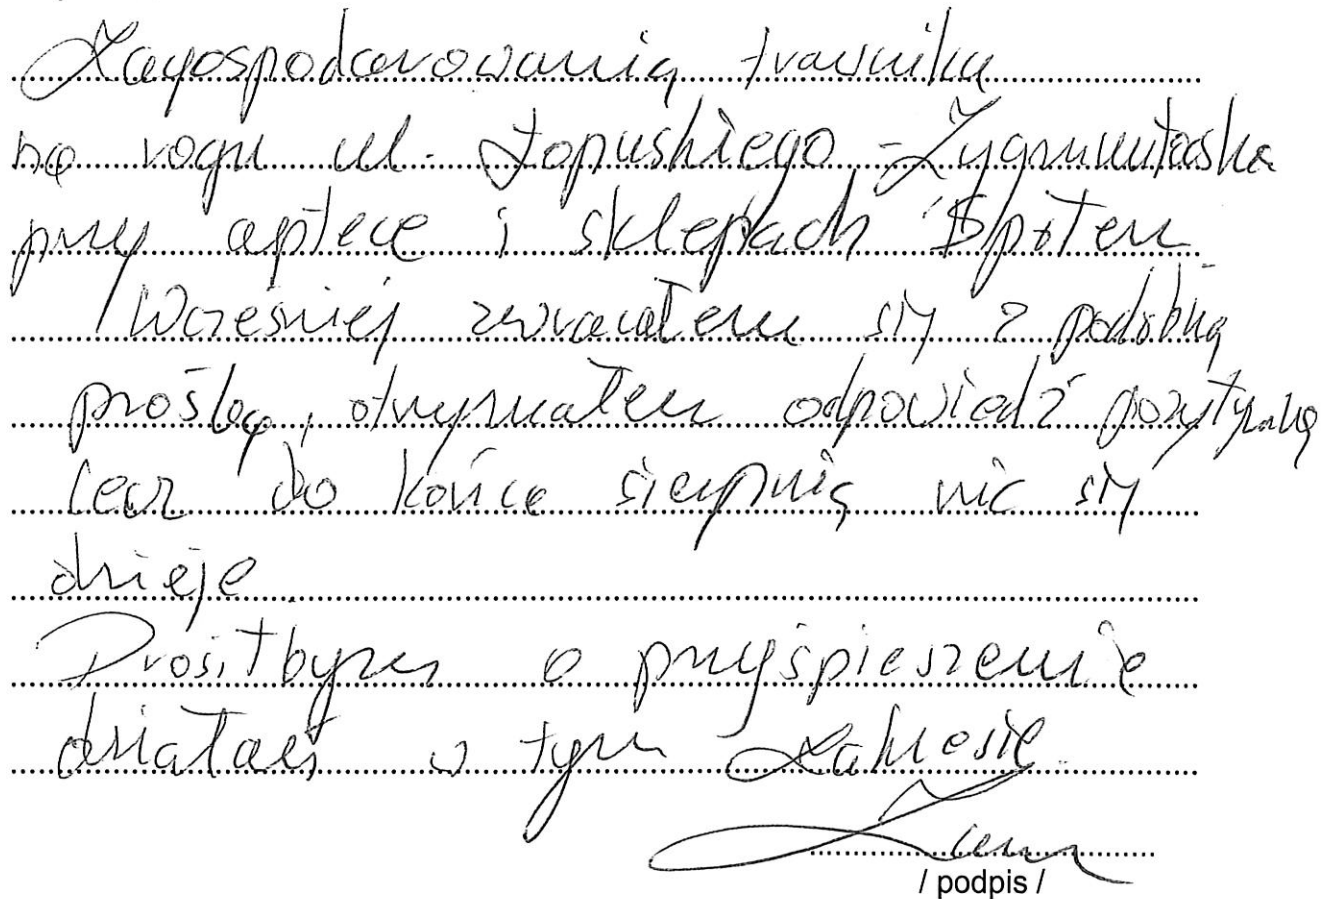 Zagospodarowania trawnika
na rogu ul. Łopuskiego - Zygmuntowska
przy aptece i sklepach Społem
Wcześniej zwracałem się z podobną
prośbą, otrzymałem odpowiedź pozytywną
lecz do końca sierpnia nic się
dzieje
Prosiłbym o przyśpieszenie
działań w tym zakresie.
/ podpis /